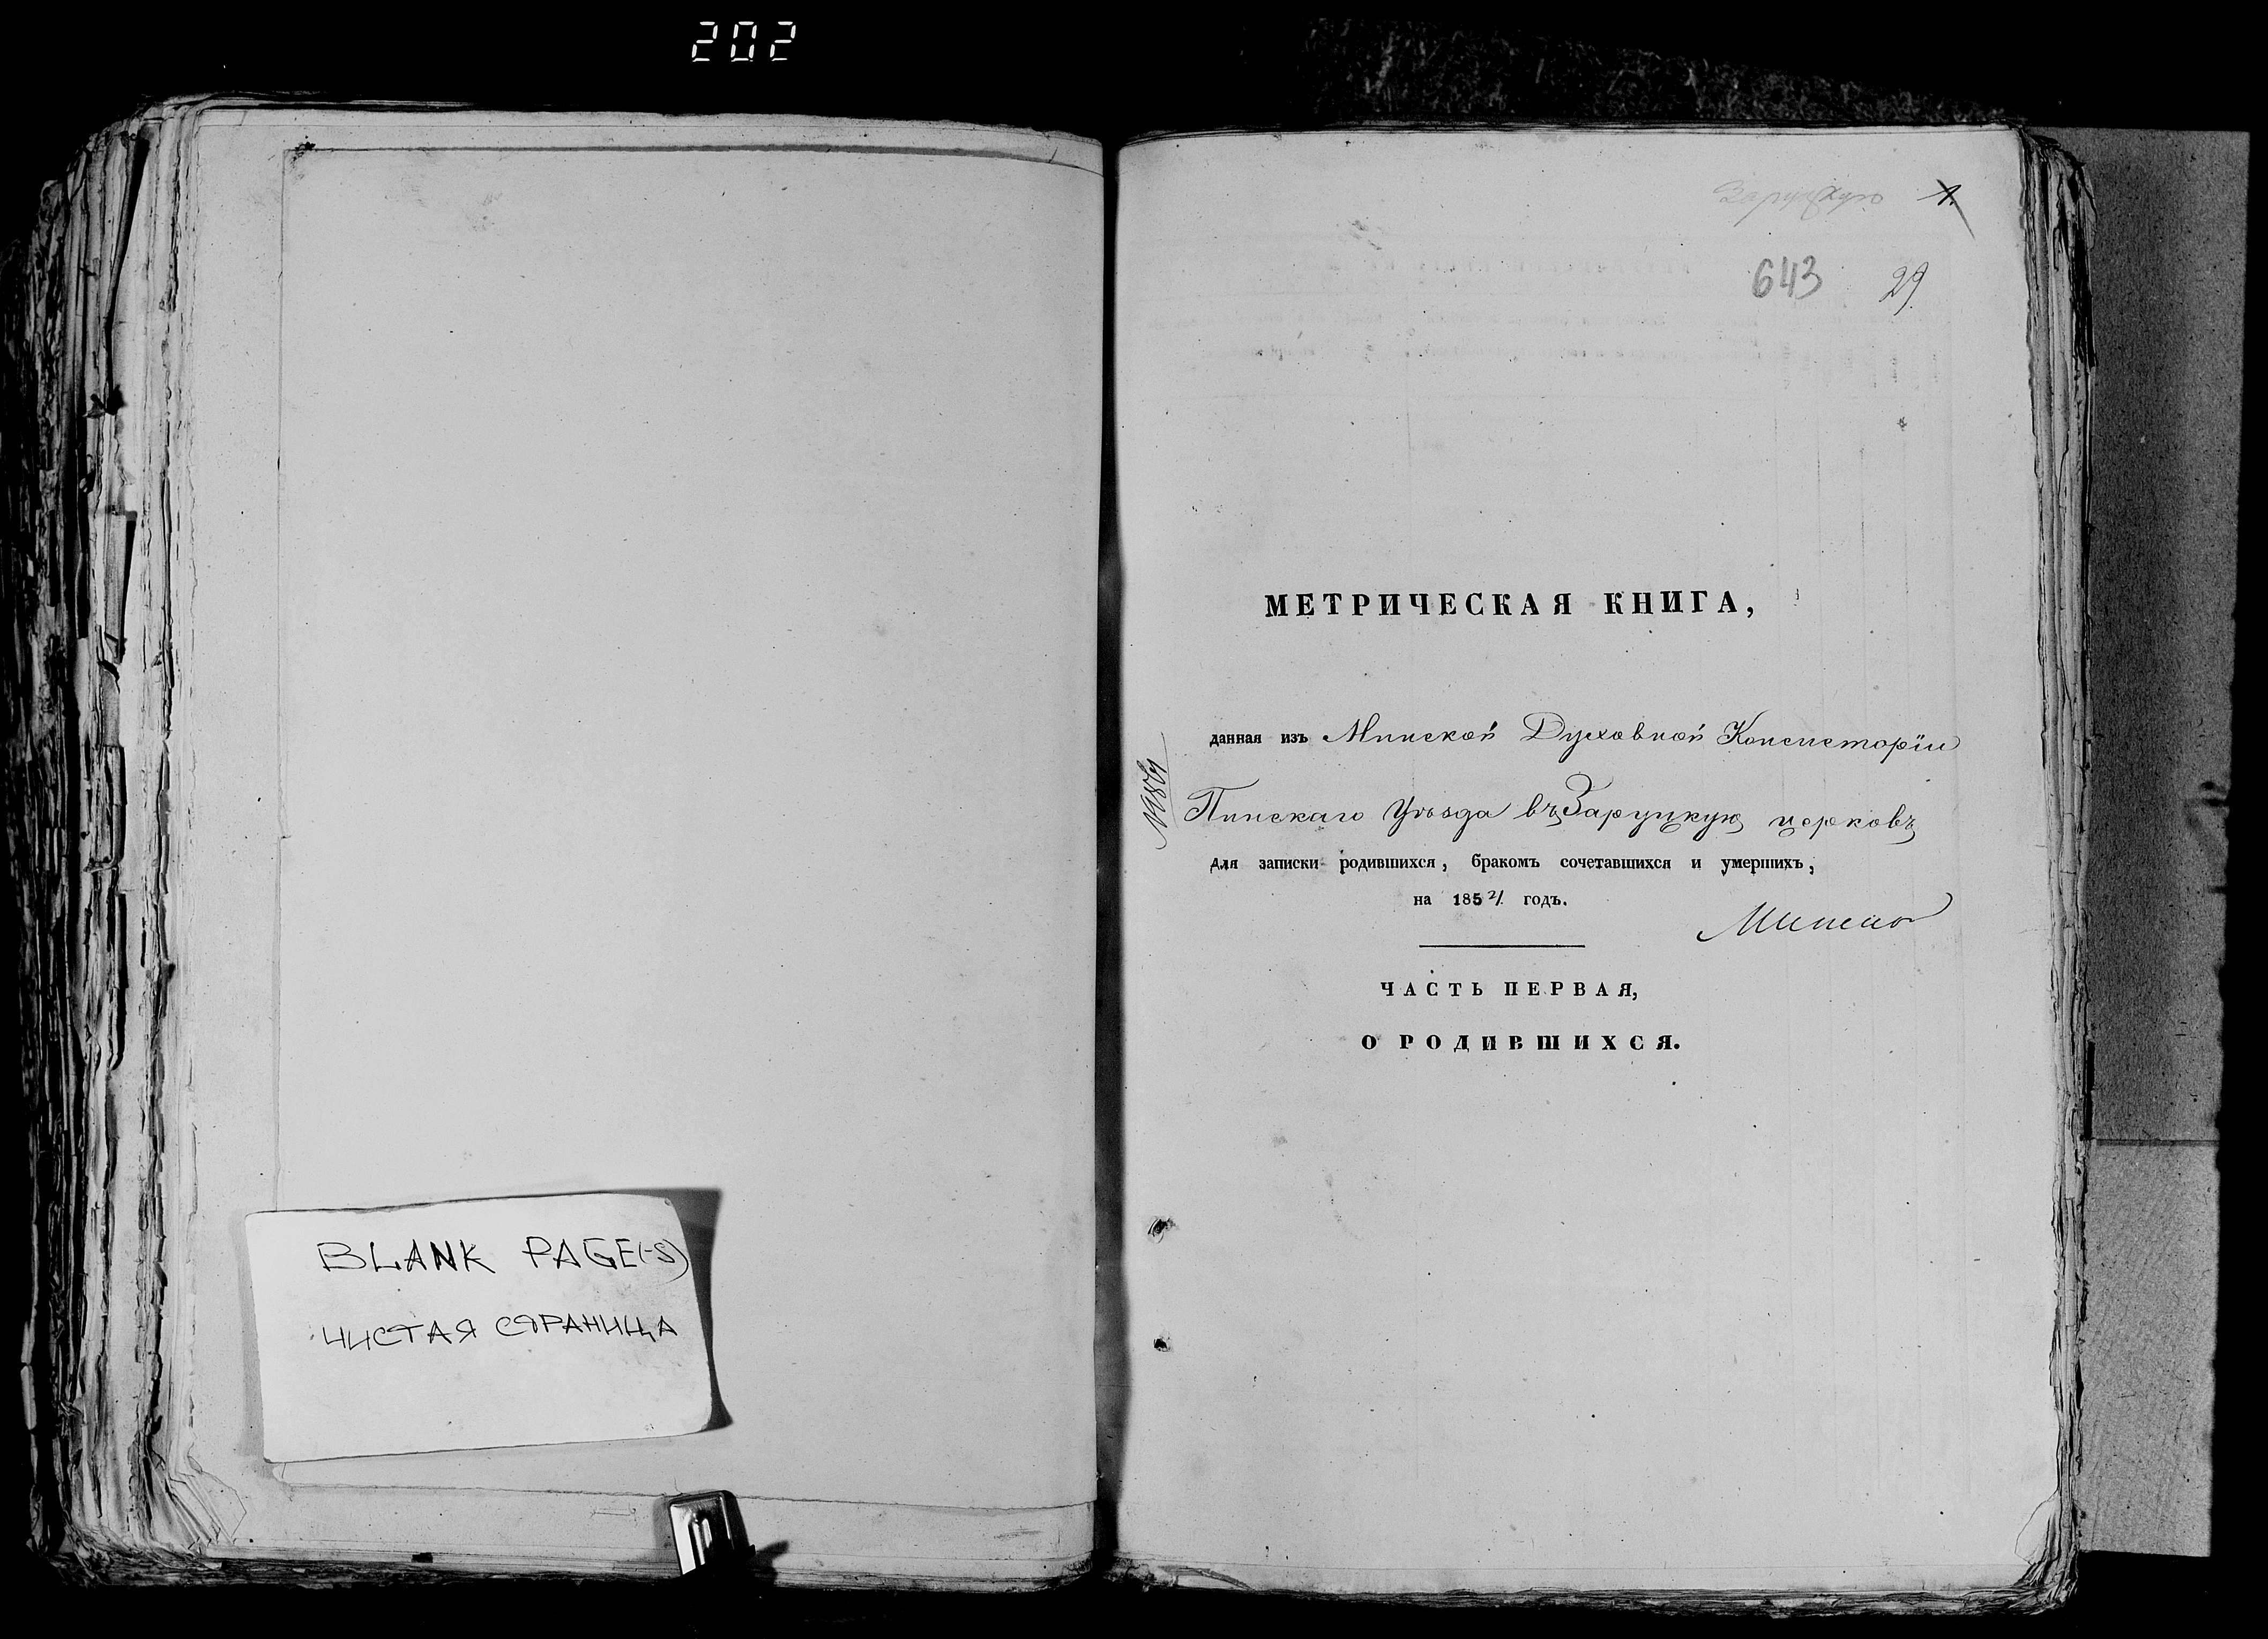 202
BLANK PAGE(-S)
ЧИСТАЯ СТРАНИЦА
1.
643 29
МЕТРИЧЕСКАЯ КНИГА,
данная изъ Минской Духовной Консисторіи
Пинскаго Уѣзда въ Заруцкую церковъ
для записки родившихся, бракомъ сочетавшихся и умершихъ,
на 185 годъ.
ЧАСТЬ ПЕРВАЯ,
О РОДИВШИХСЯ.